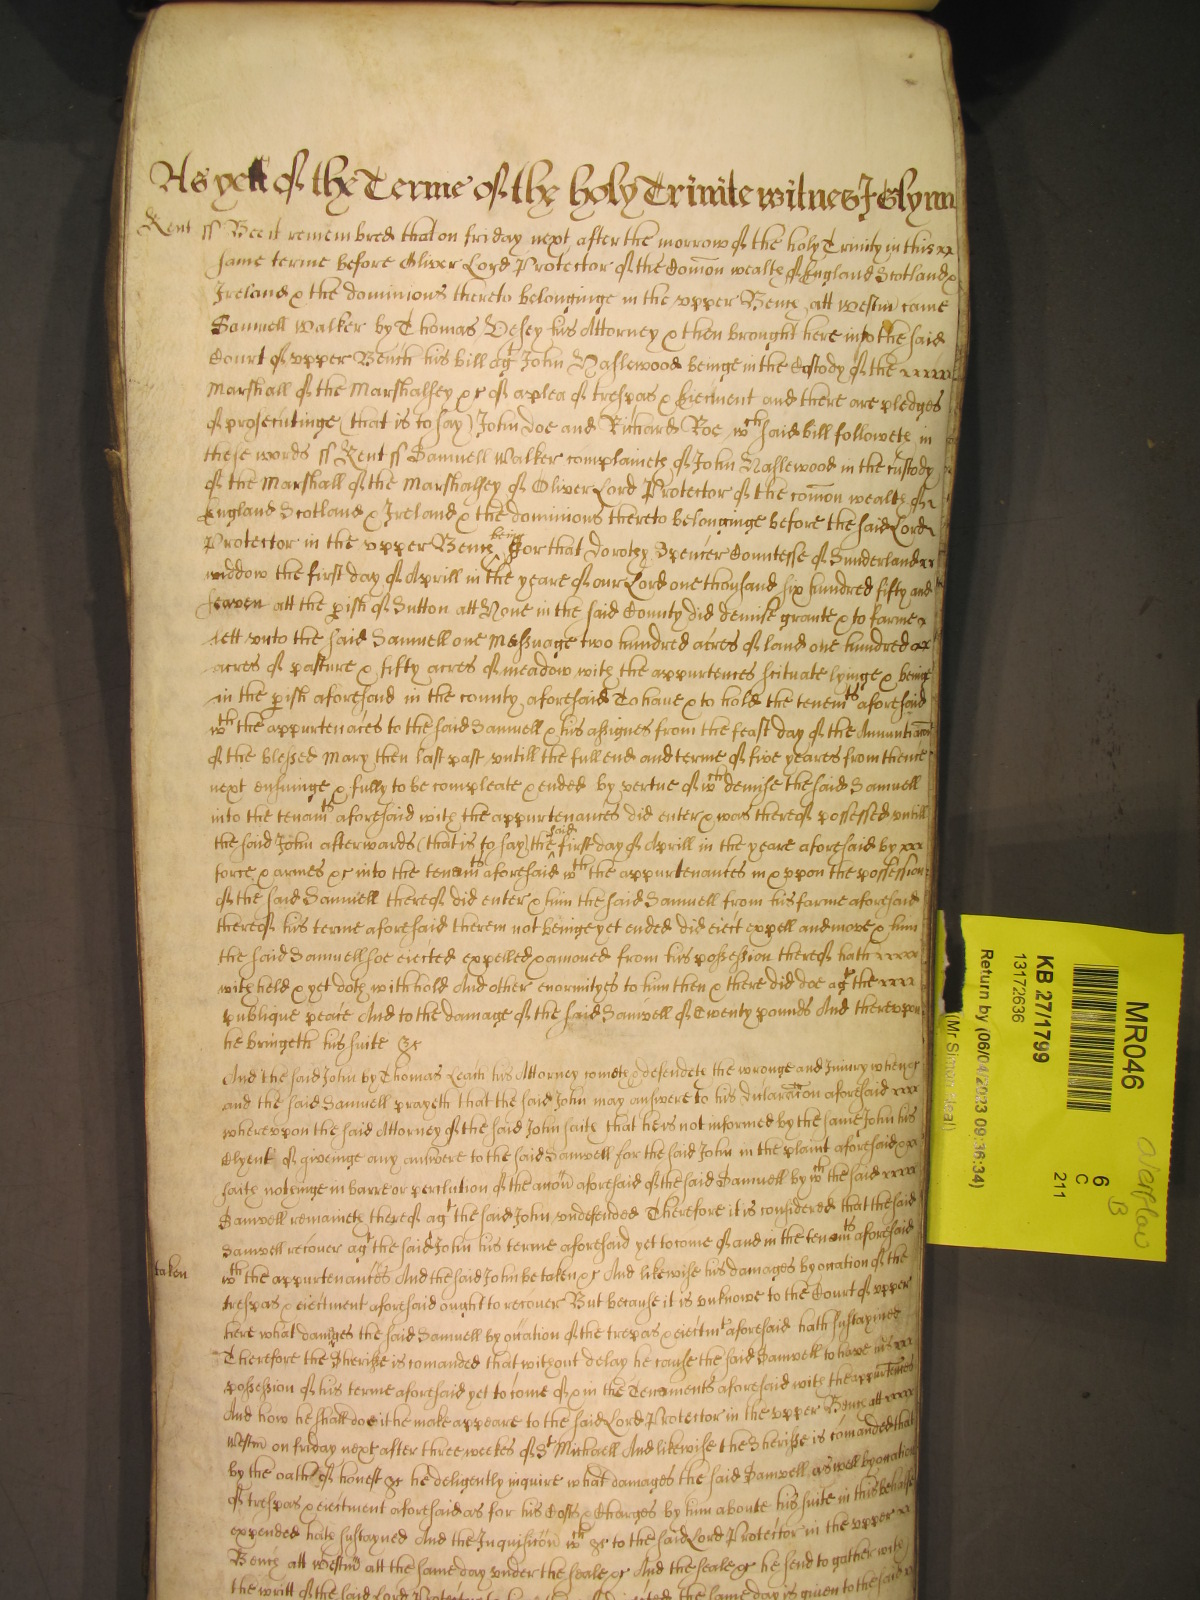 As yett of the Terme of the holy Trinite witnes J Glynn
Kent ss Bee it remembred that on friday next after the morrow of the holy Trinity in this
same terme before Oliver Lord Protector of the Com̄on wealth of England Scotland &
Ireland & the dominions thereto belonginge in the upper Bench att Westm̄ came
Samuell Walker by Thomas Vesey his Attorney & then brought here into the said
Court of upper Bench his bill agt John Haslewood beinge in the Custody of the
Marshall of the Marshalsey &c of a plea of trespas & Eiectment and there are pledges
of prosecutinge (that is to say) John Doe and Richard Roe wch said bill followeth in
these words ss Kent ss Samuell Walker complaineth of John Haslewood in the custody
of the Marshall of the Marshalsey of Oliver Lord Protector of the com̄on wealth of
England Scotland & Ireland & the dominions thereto belonginge before the said Lord
Protector in the upper Bench being For that Dorothy Spencer Countesse of Sunderland
widdow the first day of Aprill in the yeare of our Lord one thousand six hundred fifty and
seaven att the pish of Sutton att Hone in the said County did demise grante & to farme
lett unto the said Samuell one Messuage two hundred acres of land one hundred
acres of pasture & fifty acres of meadow with the appurtences scituate lyinge & being
in the pish aforesaid in the county aforesaid To have & to hold the tenemts aforesaid
wth the appurtenaces to the said Samuell & his assignes from the feast day of the Annuntiacon
of the blessed Mary then last past untill the full end and terme of five yeares from thence
next ensuinge & fully to be compleate & ended by vertue of wch demise the said Samuell
into the tenamts aforesaid with the appurtenances did enter & was thereof possessed untill
the said John afterwards (that is to say) the said first day of Aprill in the yeare aforesaid by
force & armes &c into the tenamts aforesaid wth the appurtenances in & uppon the possession
of the said Samuell thereof did enter & him the said Samuell from his farme aforesaid
thereof his terme aforesaid therein not beinge yet ended did eiect expell and move & him
the said Samuell soe eiected expelled & amoved from his possession thereof hath
withheld & yet doth withhold And other enormityes to him then & there did doe agt the
publique peace And to the damage of the said Samuell of Twenty pounds And thereuppon
he bringeth his suite &c
And the said John by Thomas Leach his Attorney cometh & defendeth the wronge and Iniury when &c
and the said Samuell prayeth that the said John may answere to his declaracon aforesaid
whereupon the said Attorney of the said John saith that he is not informed by the same John his
Clyent of giveinge any answere to the said Samuell for the said John in the plaint aforesaid
saith nothinge in barre or p̄clution of the accōn aforesaid of the said Samuell by wch the said
Samuell remaineth thereof agt the said John undefended Therefore it is considered that the said
Samuell recover agt the said John his terme aforesaid yet to come of and in the tenamts aforesaid
taken wth the appurtenances And the said John be taken &c And likewise his damages by occation of the
trespas & eiectment aforesaid ought to recover But because it is unknowe to the Court of upper
here what damages the said Samuell by occation of the trepas & eiectmt aforesaid hath sustayned
Therefore the Sheriffe is comanded that without delay he cause the said Samuell to have his
possession of his terme aforesaid yet to come of & in the Tenaments aforesaid with the appurtences
And how he shall doe it he make appeare to the said Lord Protector in the upper Bench att
Westm̄ on friday next after three weekes of St Michaell And likewise the Sheriffe is comanded that
by the oath of honest &c he deligently inquire what damages the said Samuell as well by occation
of trespas & eiectment aforesaid as for his Costs & Charges by him aboute his suite in this behalfe
expended hath sustayned And the Inquisicon wch &c to the said Lord Protector in the upper
Bench att Westm̄ att the same day under the seale &c And the seale &c he send together with
the writt of the said Lord Protector the same day is given to the said
MR046
KB 27/1799
13172636
Return by (06/04/2023 09:36:34)
6
C
211